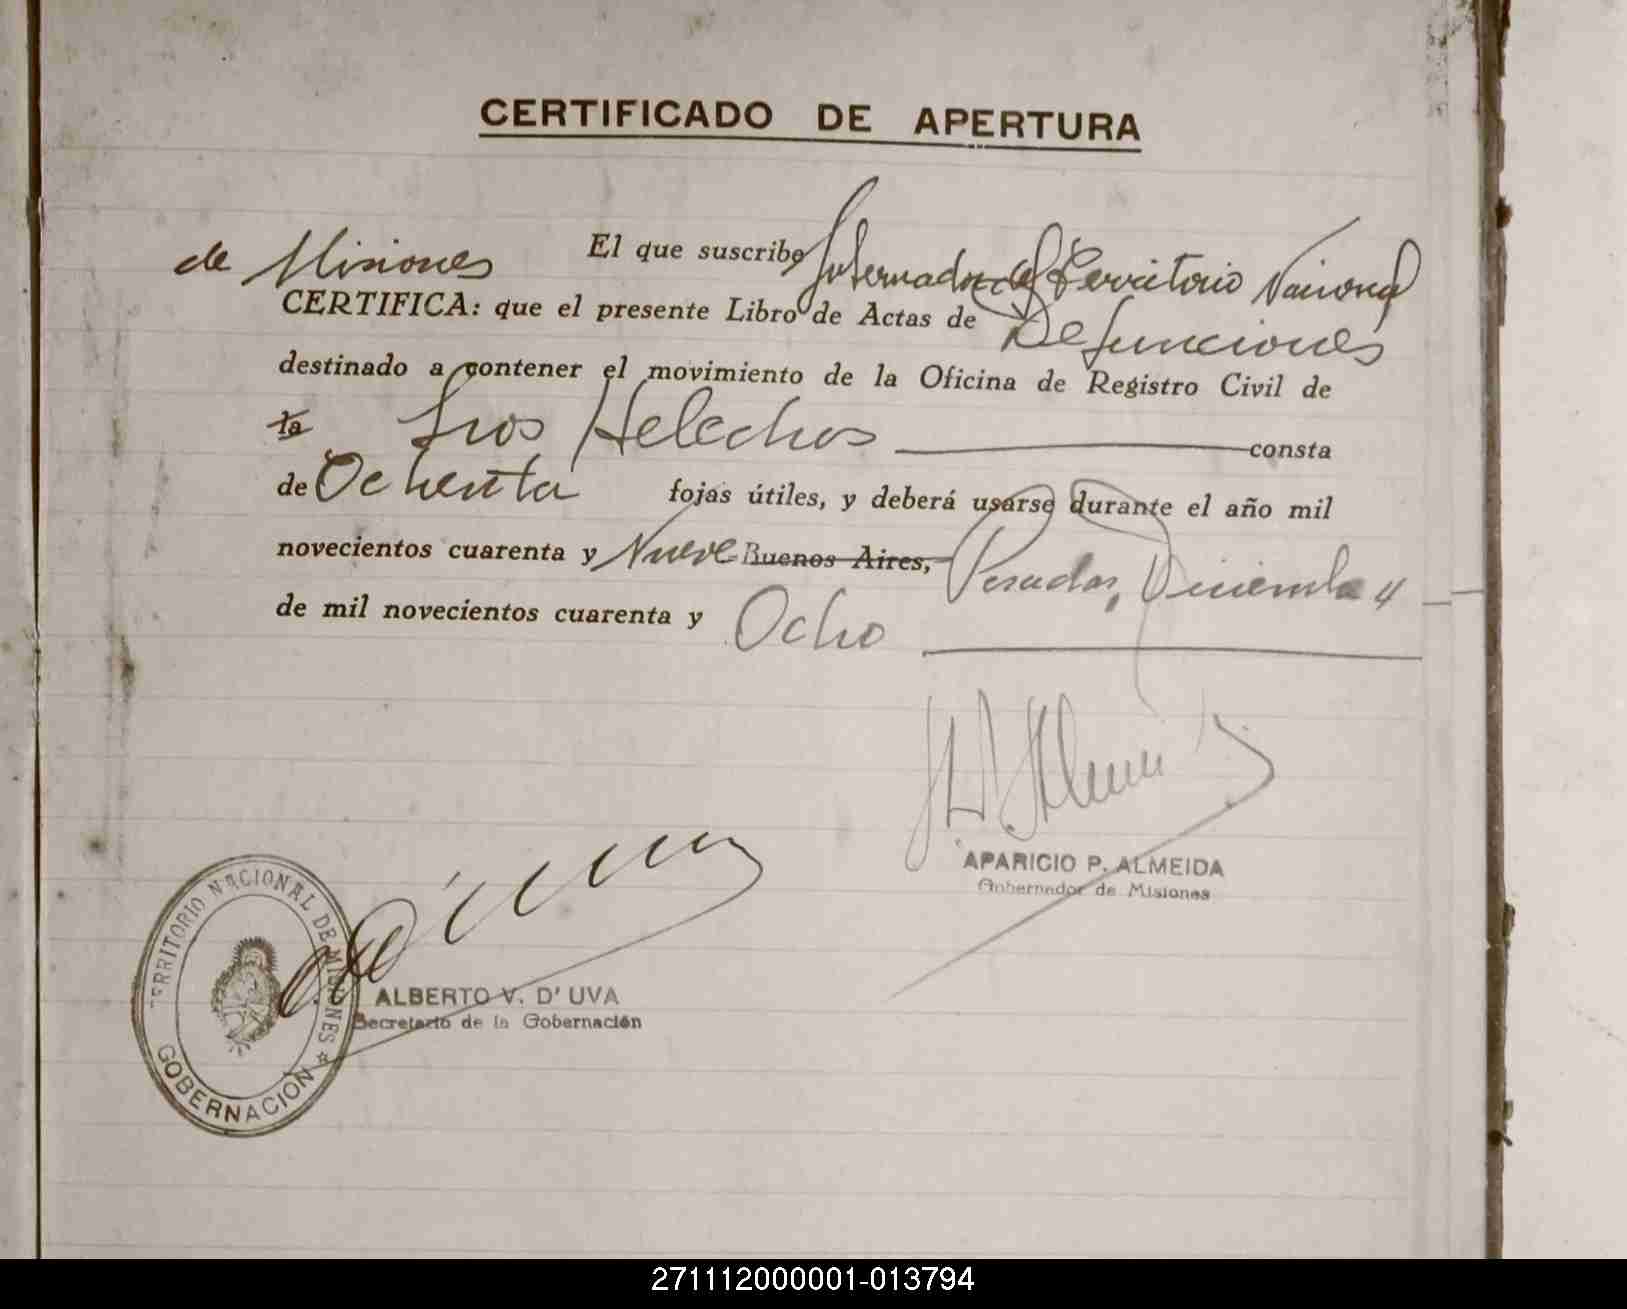 CERTIFICADO DE APERTURA
El que suscribe Gobernador del Territorio Nacional
de Misiones
CERTIFICA: que el presente Libro de Actas de Defunciones
destinado a contener el movimiento de la Oficina de Registro Civil de
la Los Helechos consta
de Ochenta fojas útiles, y deberá usarse durante el año mil
novecientos cuarenta y Nueve Buenos Aires, Posadas, Diciembre 4
de mil novecientos cuarenta y Ocho
APARICIO P. ALMEIDA
Gobernador de Misiones
TERRITORIO NACIONAL DE MISIONES
GOBERNACION
ALBERTO V. D' UVA
Secretario de la Gobernación
271112000001-013794